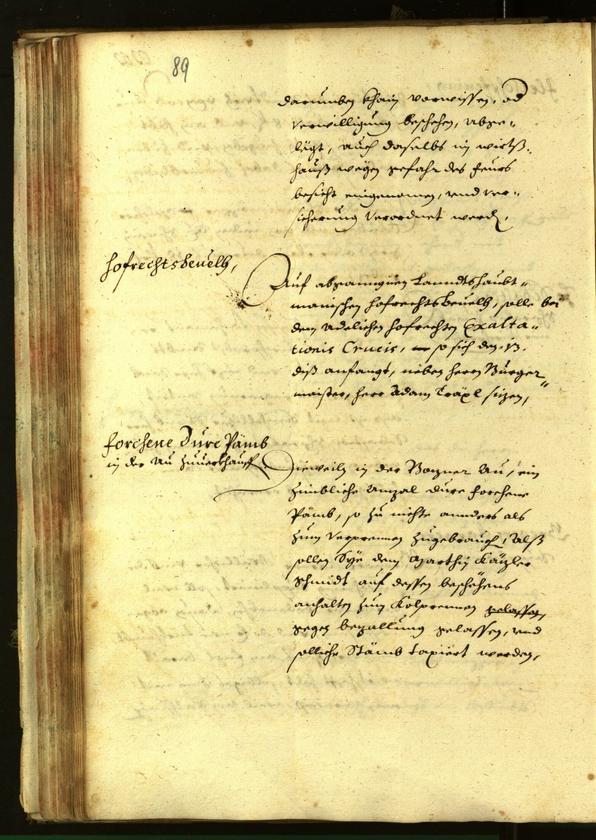 89
darumben khain vorwissen, od
verwilligung beschehen, abge-
lögt, auch daselbs im wirtß-
hauß wegen gefahr des feurs
besicht eingenomen, und ver-
sicherung verordnet werd,
hofrechts beuelh,
Auf abgangnen Lanndtshaubt-
manischen hofrechts beuelh, solle bei
dem Adelichen hofrechten Exalta-
tionis Crucis, so sich den 13.
diß anfangt, neben herrn Burger-
maister, herr Adam Träpl sizen,
forchene Düre Pämb
in der Au zuuerkhauff
Dieweiln in der Bozner Au, ein
zimbliche Anzal dürr forchene
Pämb, so zu nichts annders als
zum verprennen zugebrauch, Alß
sollen Sye dem Marthin
Schmidt auf dessen beschehens
anhalten zum Kolprennen gelassen
gegen bezallung gelassen, und
solliche Stämb taxiert werden,